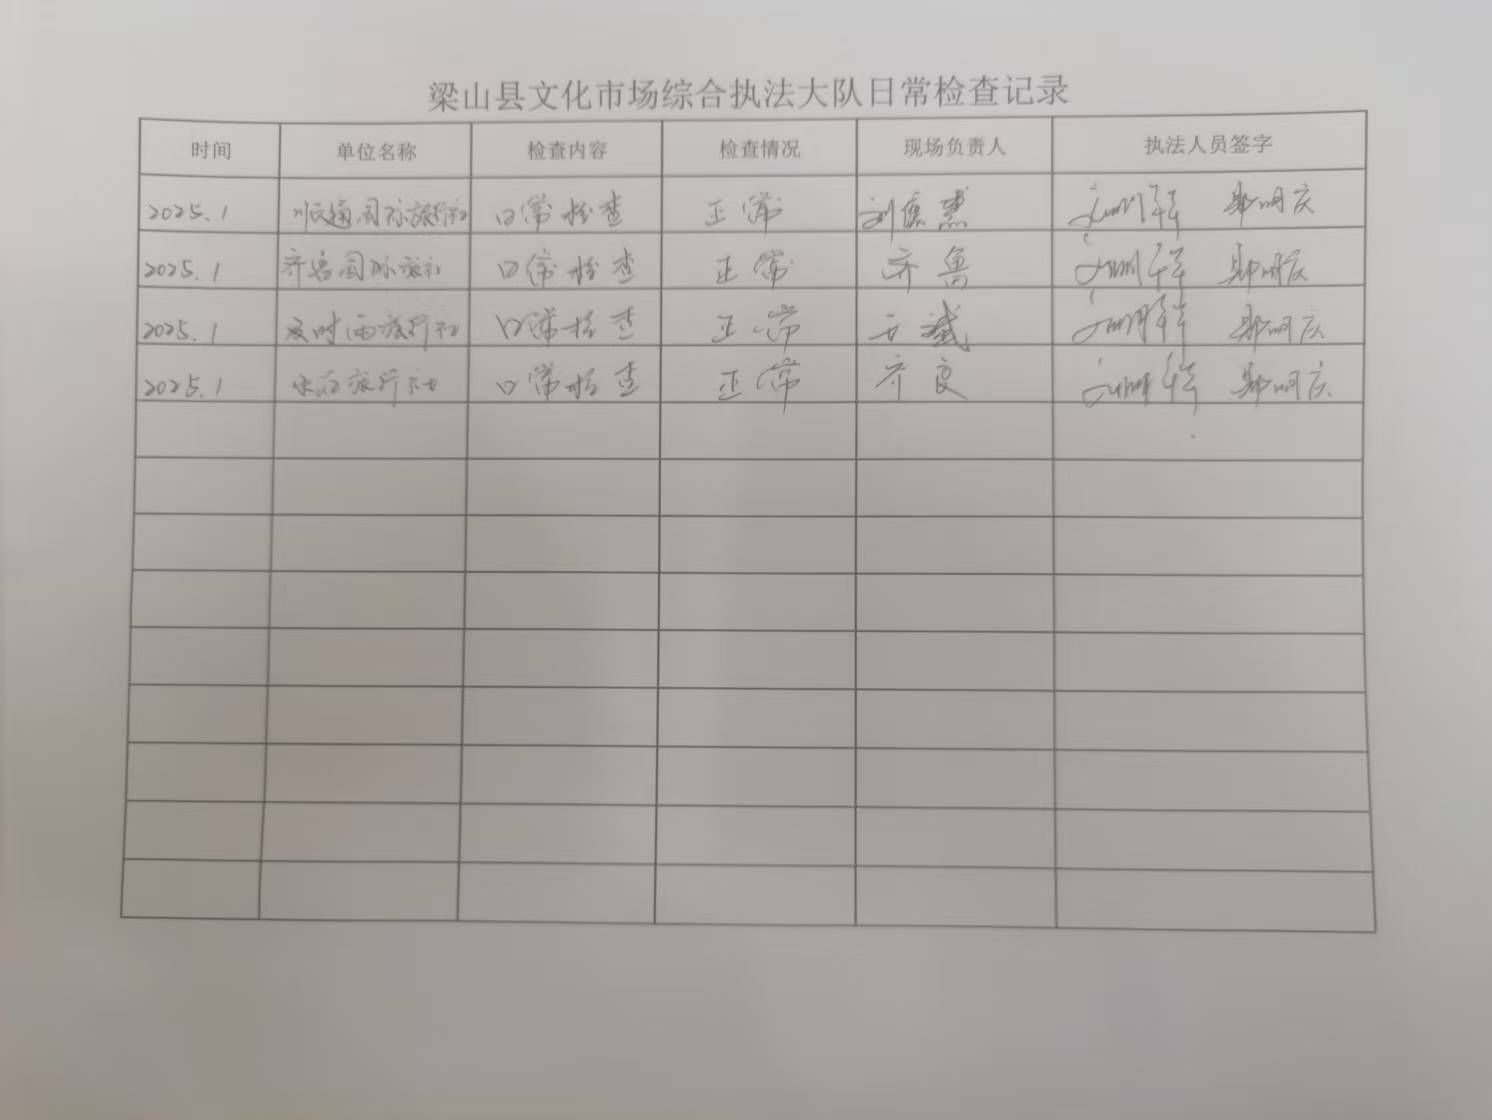 梁山县文化市场综合执法大队日常检查记录
时间 单位名称 检查内容 检查情况 现场负责人 执法人员签字
2025.1 通国际旅行社 日常检查 正常 刘德 郑明庆
2025.1 齐鲁国际旅社 日常检查 正常 齐鲁 郑明庆
2025.1 及时雨旅行社 日常检查 正常 郑明庆
2025.1 旅行社 日常检查 正常 齐良 郑明庆